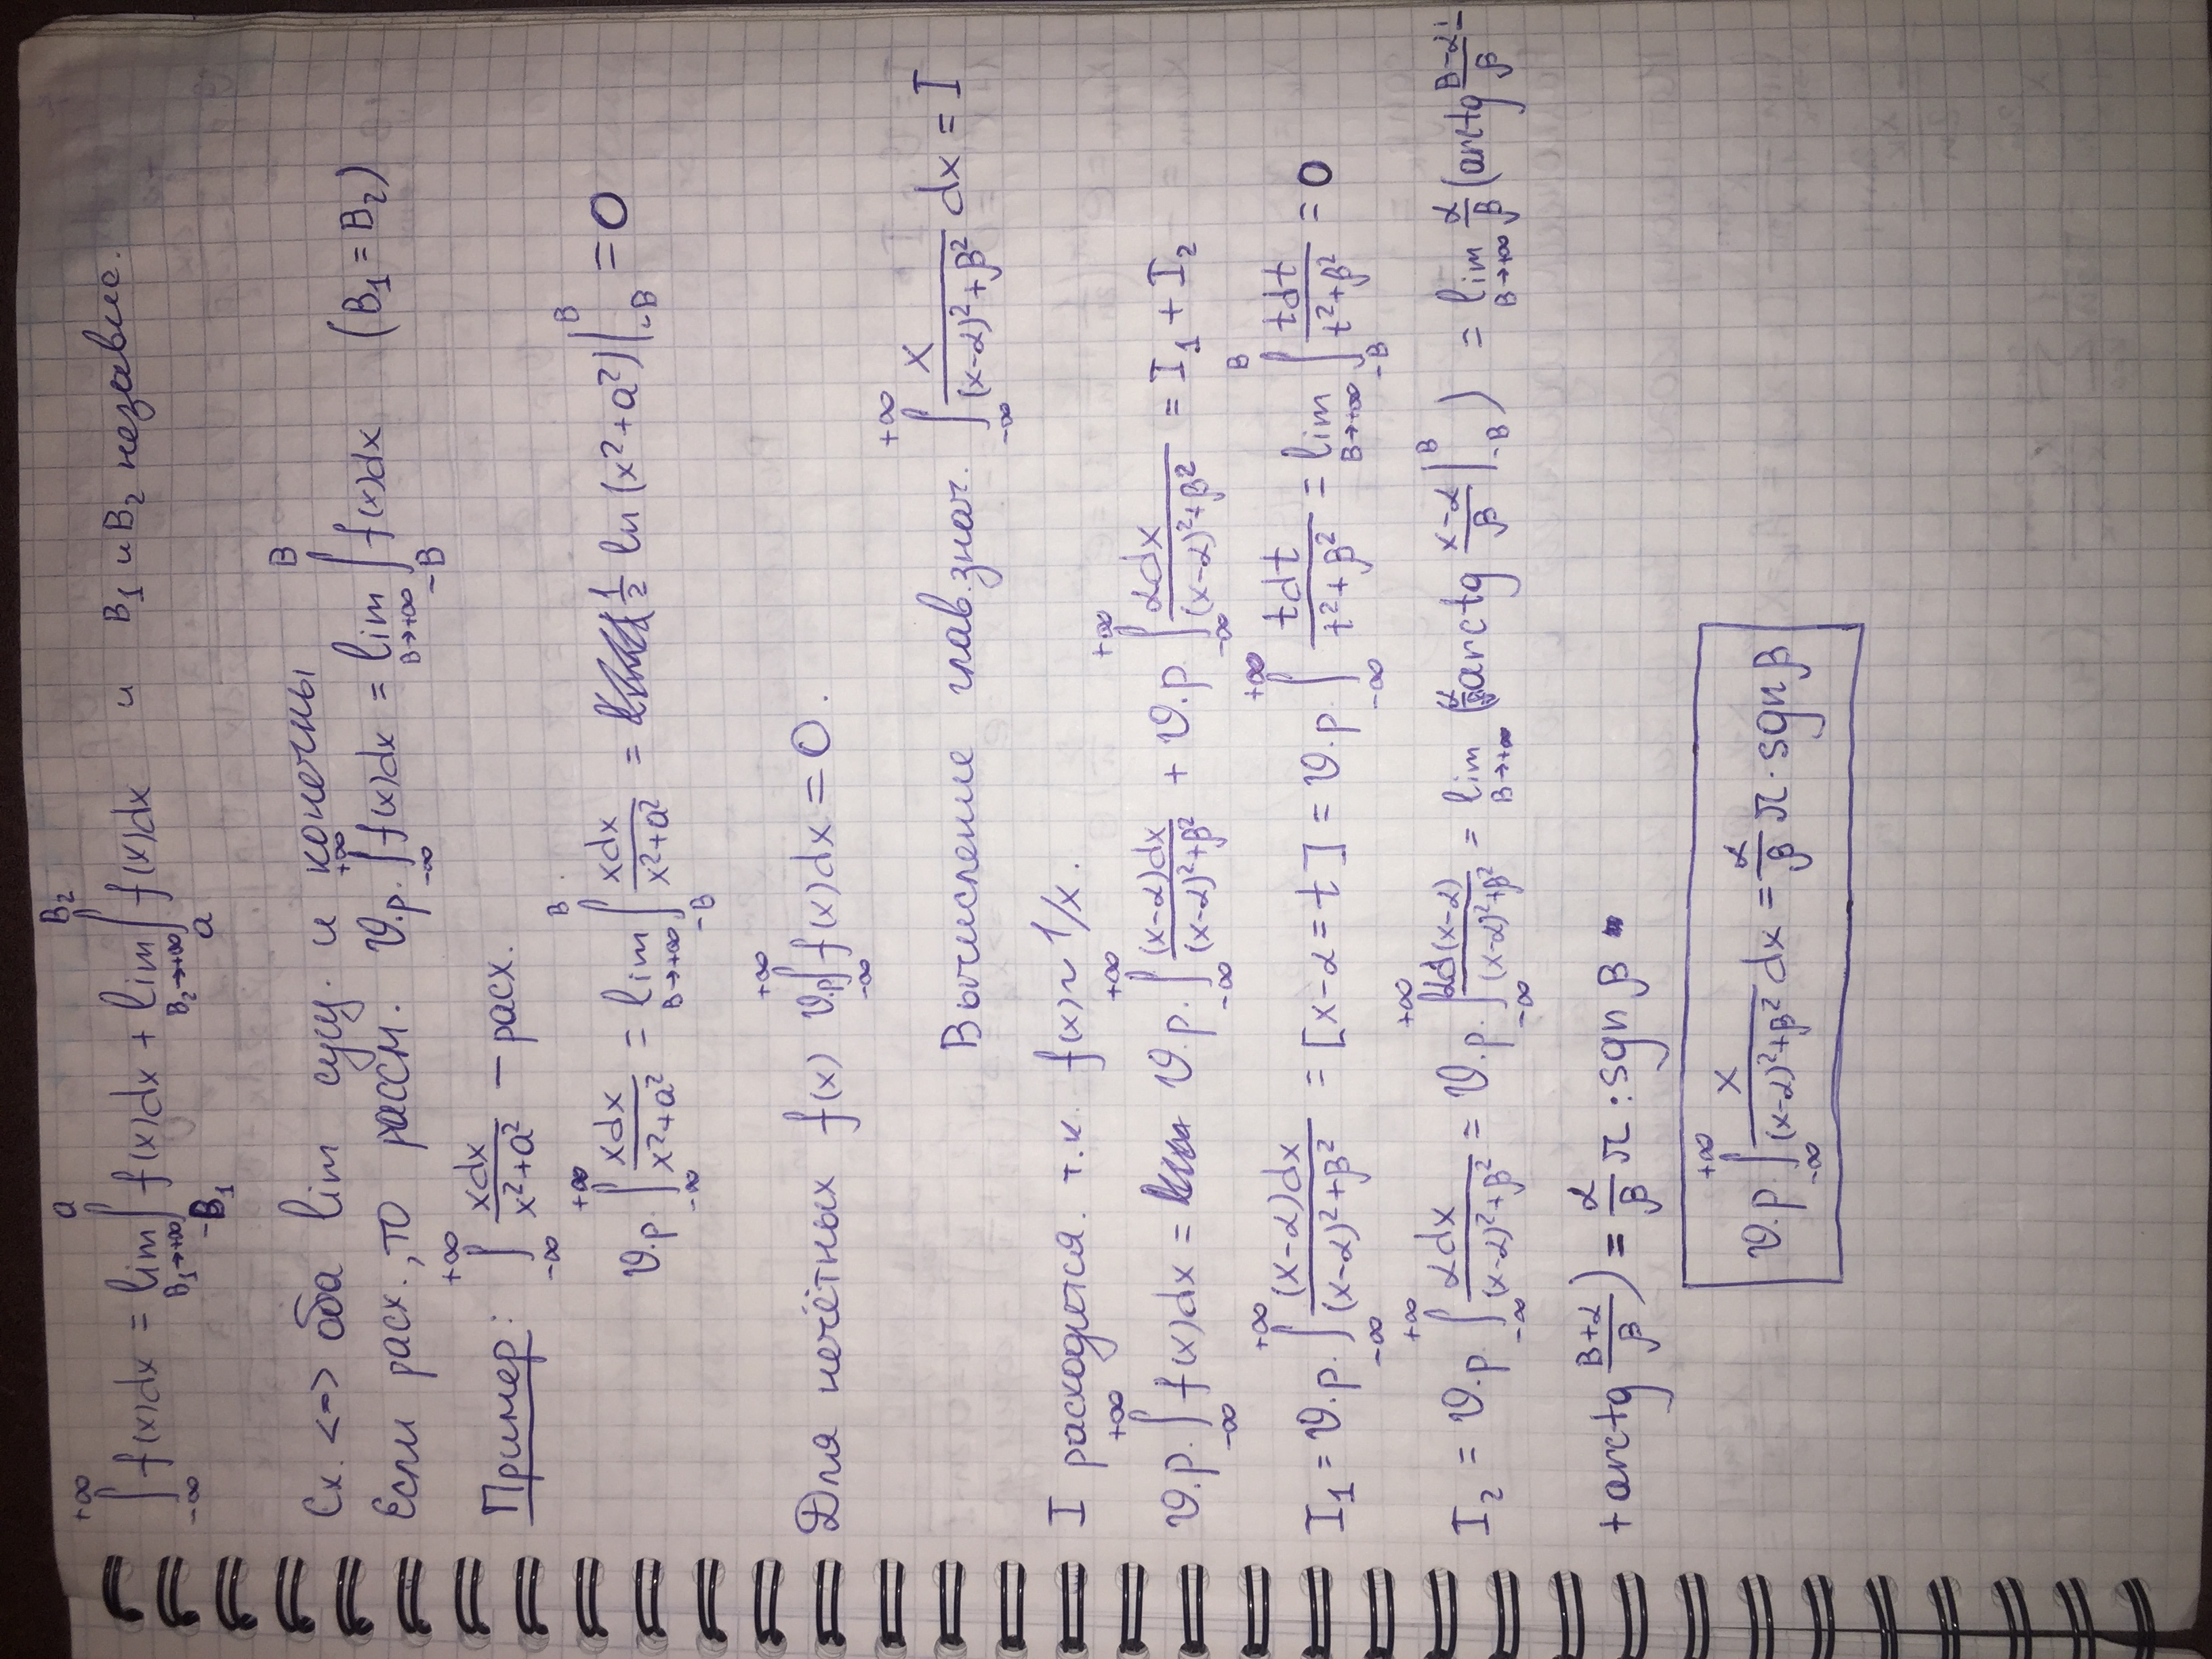 $\int_{-\infty}^{+\infty} f(x)dx = \lim_{B_1 \to +\infty} \int_{-B_1}^{a} f(x)dx + \lim_{B_2 \to +\infty} \int_{a}^{B_2} f(x)dx$ и $B_1$ и $B_2$ независ.
Сх. <=> оба lim сущ. и конечны
Если расх., то рассм. $v.p. \int_{-\infty}^{+\infty} f(x)dx = \lim_{B \to +\infty} \int_{-B}^{B} f(x)dx$ $(B_1 = B_2)$
Пример: $\int_{-\infty}^{+\infty} \frac{xdx}{x^2+a^2}$ – расх.
$v.p. \int_{-\infty}^{+\infty} \frac{xdx}{x^2+a^2} = \lim_{B \to +\infty} \int_{-B}^{B} \frac{xdx}{x^2+a^2} = \frac{1}{2} \ln(x^2+a^2) \Big|_{-B}^{B} = 0$
Для нечётных $f(x)$ $v.p. \int_{-\infty}^{+\infty} f(x)dx = 0.$
Вычисление глав.знач. $\int_{-\infty}^{+\infty} \frac{x}{(x-\alpha)^2+\beta^2} dx = I$
I расходится. т.к. $f(x) \sim 1/x.$
$v.p. \int_{-\infty}^{+\infty} f(x)dx = v.p. \int_{-\infty}^{+\infty} \frac{(x-\alpha)dx}{(x-\alpha)^2+\beta^2} + v.p. \int_{-\infty}^{+\infty} \frac{\alpha dx}{(x-\alpha)^2+\beta^2} = I_1 + I_2$
$I_1 = v.p. \int_{-\infty}^{+\infty} \frac{(x-\alpha)dx}{(x-\alpha)^2+\beta^2} = [x-\alpha=t] = v.p. \int_{-\infty}^{+\infty} \frac{tdt}{t^2+\beta^2} = \lim_{B \to +\infty} \int_{-B}^{B} \frac{tdt}{t^2+\beta^2} = 0$
$I_2 = v.p. \int_{-\infty}^{+\infty} \frac{\alpha dx}{(x-\alpha)^2+\beta^2} = v.p. \int_{-\infty}^{+\infty} \frac{\alpha d(x-\alpha)}{(x-\alpha)^2+\beta^2} = \lim_{B \to +\infty} (\frac{\alpha}{\beta} arctg \frac{x-\alpha}{\beta} \Big|_{-B}^{B}) = \lim_{B \to +\infty} \frac{\alpha}{\beta} (arctg \frac{B-\alpha}{\beta} +$
$+ arctg \frac{B+\alpha}{\beta}) = \frac{\alpha}{\beta} \pi \cdot sgn \beta$
$v.p. \int_{-\infty}^{+\infty} \frac{x}{(x-\alpha)^2+\beta^2} dx = \frac{\alpha}{\beta} \pi \cdot sgn \beta$